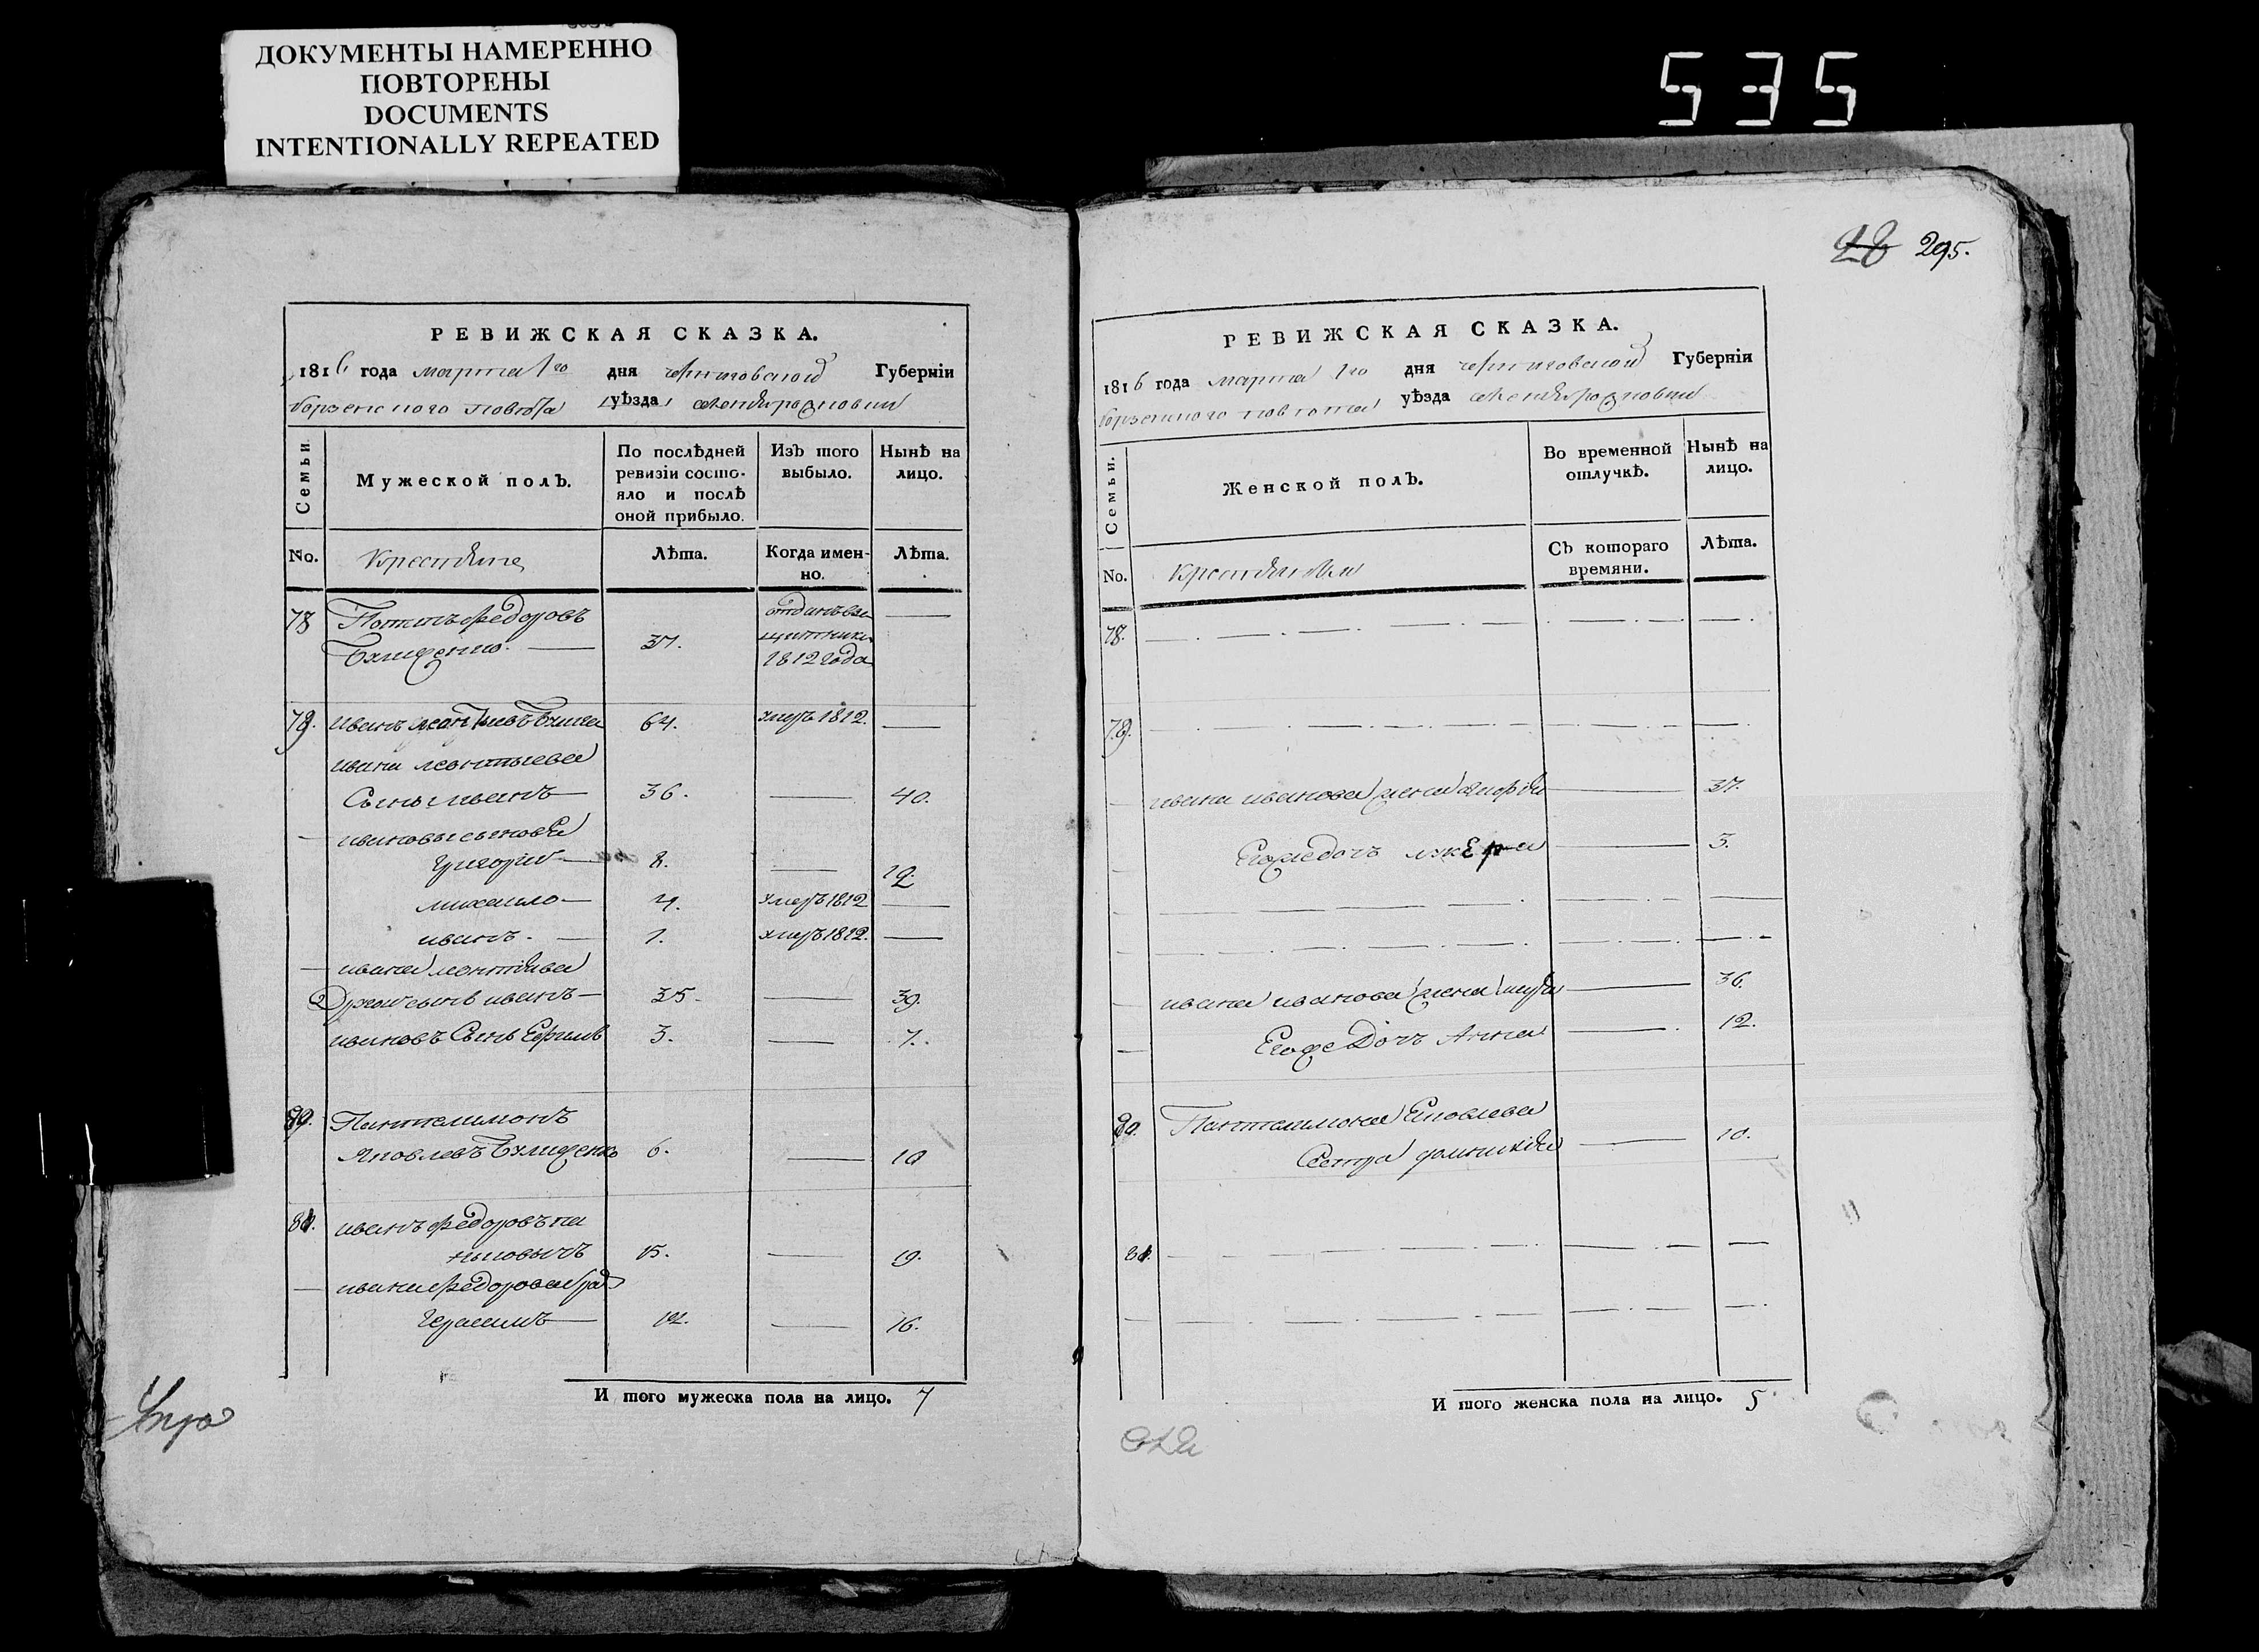 ДОКУМЕНТЫ НАМЕРЕННО
ПОВТОРЕНЫ
DOCUMENTS
INTENTIONALLY REPEATED
535
РЕВИЖСКАЯ СКАЗКА.
1816 года марта 1го дня черниговской Губерніи
борзенского повѣта уѣзда
Семьи
Мужеской полъ.
По послѣдней ревизіи состояло и послѣ оной прибыло.
Изъ того выбыло.
Нынѣ на лицо.
No. Крестьяне Лѣта. Когда именно. Лѣта.
78 федоровъ
37. 1812 года
79. иванъ 64. умеръ 1812.
ивана леонтьева
Сынъ иванъ 36. 40.
ивановы сыновья
Григорий 8. 12.
михайло 4. умеръ 1812
иванъ. 1. умеръ 1812.
ивана леонтьева
2 другой сынъ иванъ 35. 39.
ивановъ Сынъ Ефимъ 3. 7.
80. Пантелимонъ
Яковлевъ 6. 10
81. иванъ федоровъ
15. 19.
ивана федорова братъ
Герасимъ 12. 16.
И того мужеска пола на лицо. 7
28 295.
РЕВИЖСКАЯ СКАЗКА.
1816 года марта 1го дня черниговской Губерніи
борзенского повѣта уѣзда
Семьи.
Женской полъ.
Во временной отлучкѣ.
Нынѣ на лицо.
No. Крестьянки Съ котораго времяни. Лѣта.
78.
79.
ивана иванова жена 37.
Егоже дочь 3.
ивана иванова жена 36.
Егоже Дочь Анна 12.
80. Пантелимона Яковлева
Сестра 10.
81.
И того женска пола на лицо. 5